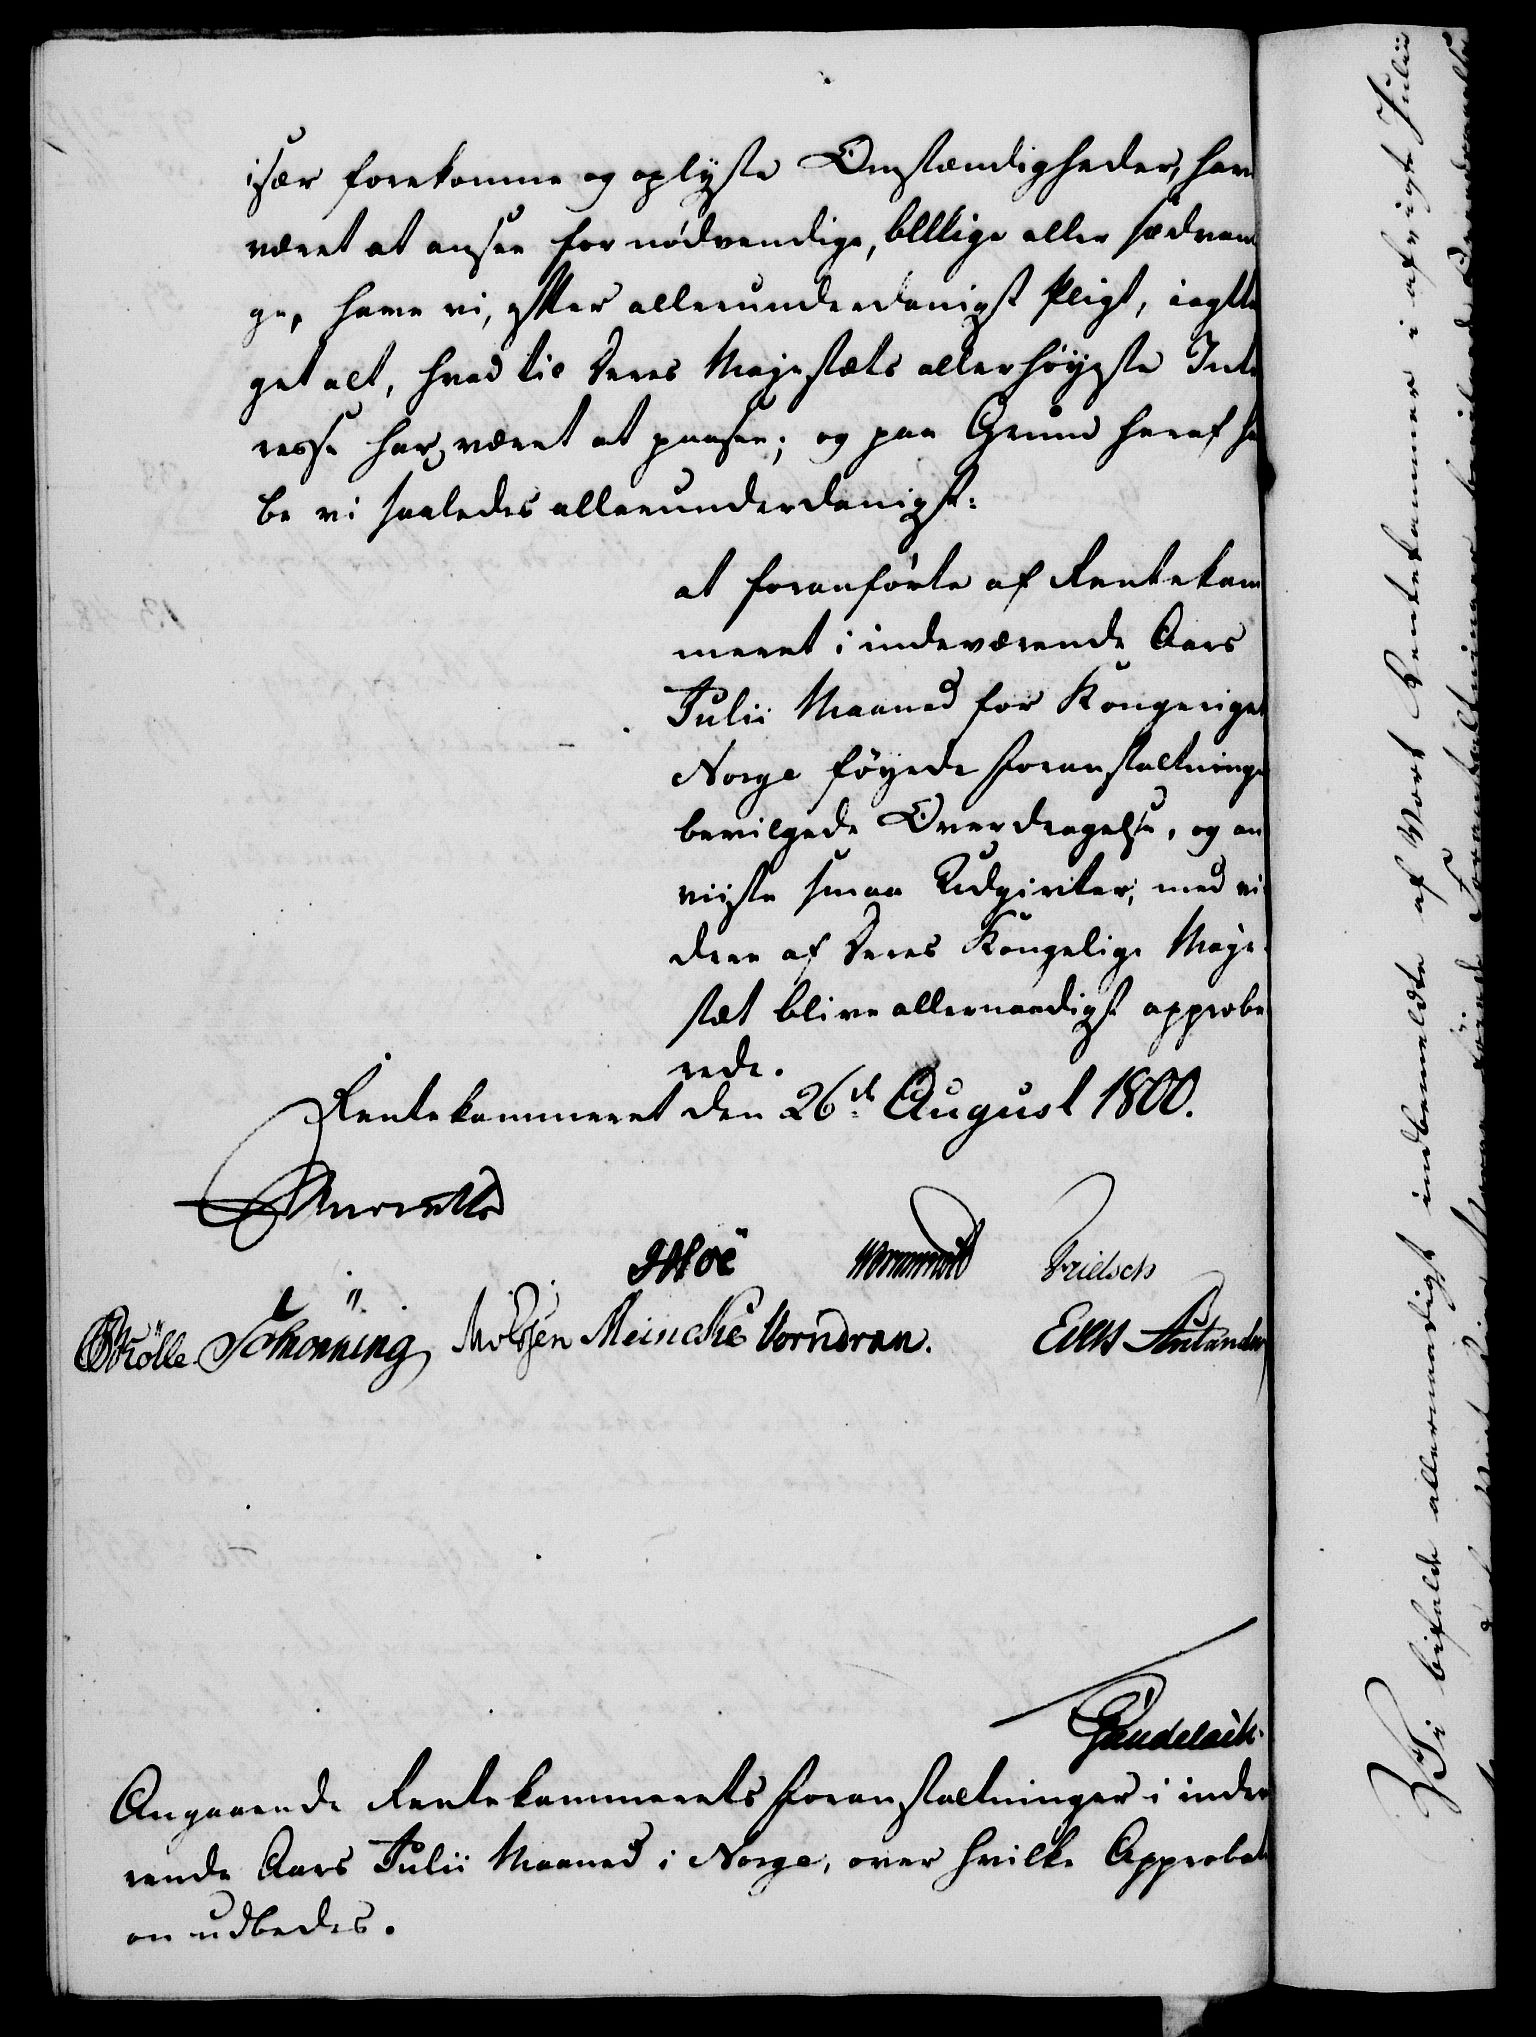 især forekomne og oplyste Omstændigheder, have
været at ansee for nødvendige, billige eller sædvanli
ge, have vi, efter allerunderdanigst Pligt, iagtta
get alt, hvad til Deres Majestæts allerhöyeste Inte
resse har været at paasee; og paa Grund heraf ha
be vi saaledes allerunderdanigst:
at foranförte af Rentekam
meret i indeværende Aars
Julii Maaned for Kongeriget
Norge föyede Foranstaltninger
bevilgede Overdragelse, og an
viiste smaa Udgivter, med vi
dere af Deres Kongelige Maje
stæt blive allernaadigst approbe
rede.
Rentekammeret den 26de August 1800.
Hoë Fridsch
Mølle Schönning Meincke Vorndran.
Angaaende Rentekammerets Foranstaltninger i indevæ
rende Aars Julii Maaned i Norge, over hvilke Approbati
on udbedes.
Vi bifalde allernaadigst indbemeldte af Vort Rentekammer i afvigte Julii